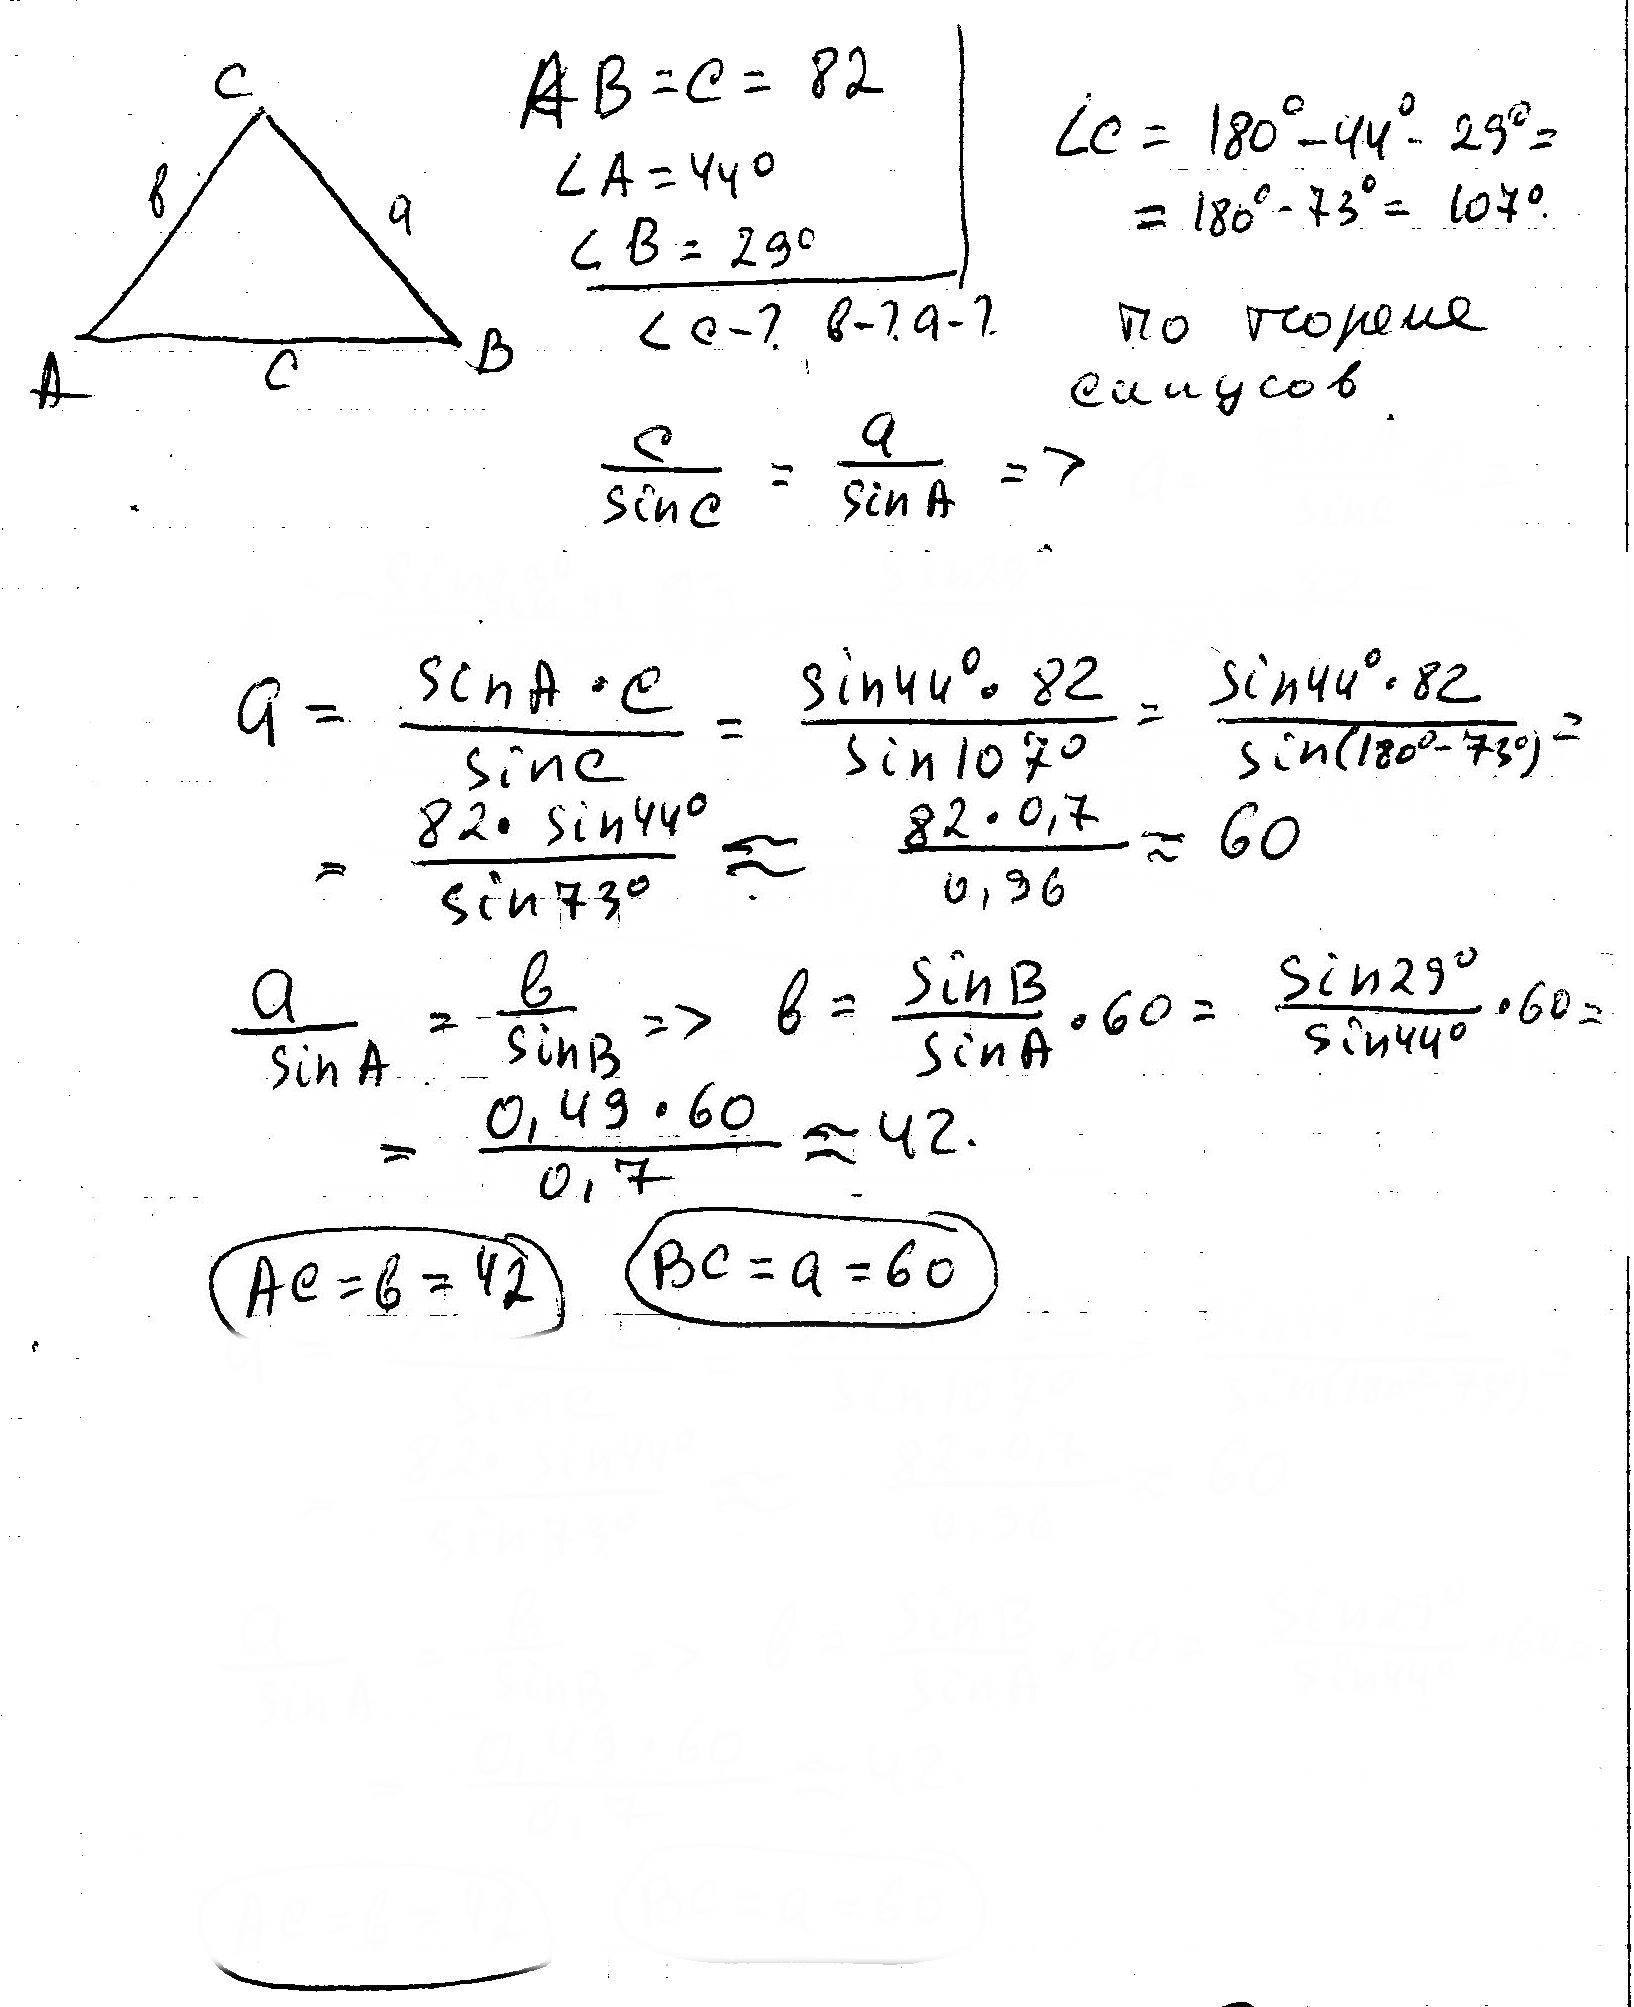 C
в
a
A
c
B
AB = c = 82
∠A = 44°
∠B = 29°
∠C - ? в - ? a - ?
∠C = 180° - 44° - 29° =
= 180° - 73° = 107°.
по теореме
синусов
c/sinC = a/sinA =>
a = sinA · c / sinC = sin44° · 82 / sin107° = sin44° · 82 / sin(180° - 73°) =
= 82 · sin44° / sin73° ≈ 82 · 0,7 / 0,96 ≈ 60
a/sinA = в/sinB => в = sinB/sinA · 60 = sin29°/sin44° · 60 =
= 0,49 · 60 / 0,7 ≈ 42.
AC = в = 42 BC = a = 60